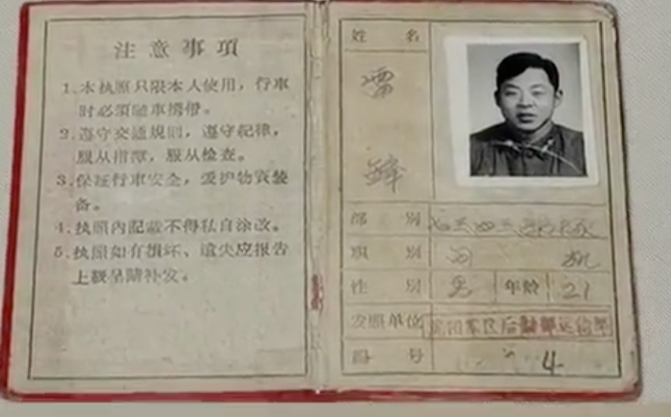 注意事項
1.本执照只限本人使用，行車
时必須隨車携帶。
2.遵守交通規則，遵守紀律，
服从指揮，服从檢查。
3.保証行車安全，爱护物資裝
备。
4.执照內記載不得私自涂改。
5.执照如有損坏、遺失应报告
上級呈請补发。
姓 名
雷
鋒
部 別
職 別 司 机
性 別 男 年龄 21
发照单位 沈阳軍区后勤部运輸部
編 号 4